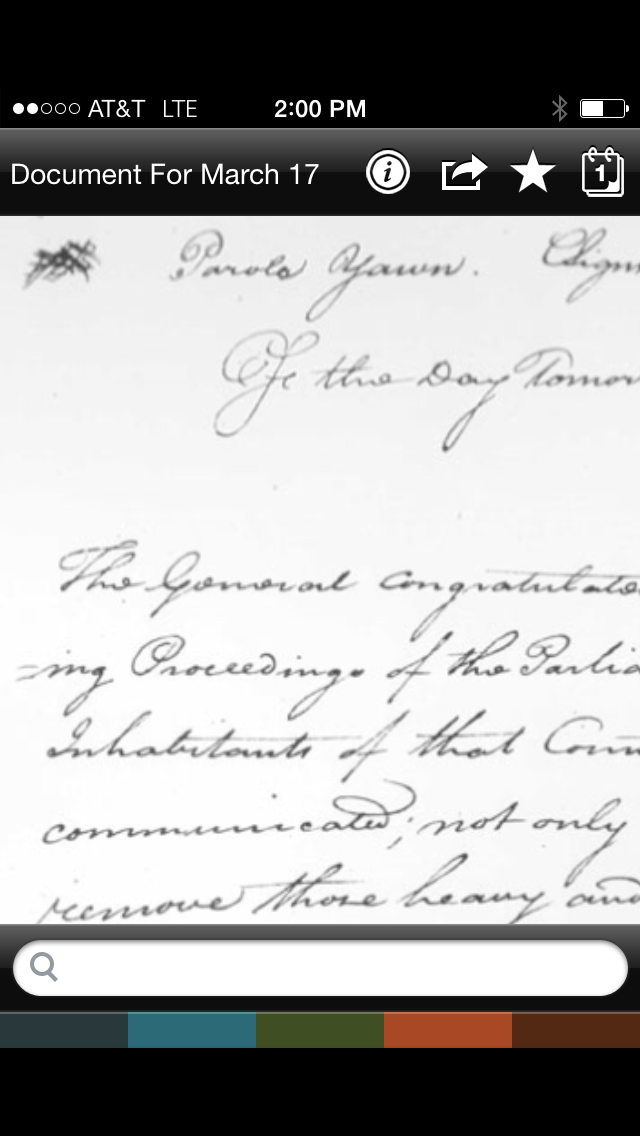 AT&T LTE 2:00 PM
Document For March 17
1
Parole Yawn.
Of the Day Tomor
The General congratulate
=ing Proceedings of the Parlia
Inhabitants of that Coun
communicated; not only
remove those heavy and